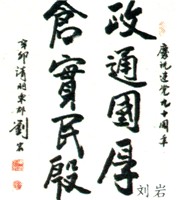 慶祝建党九十周年
政通國厚
倉實民殷
辛卯清明東邨劉岩
刘岩